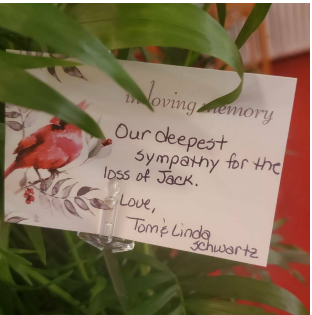 in loving memory
Our deepest
sympathy for the
loss of Jack.
Love,
Tom & Linda
Schwartz